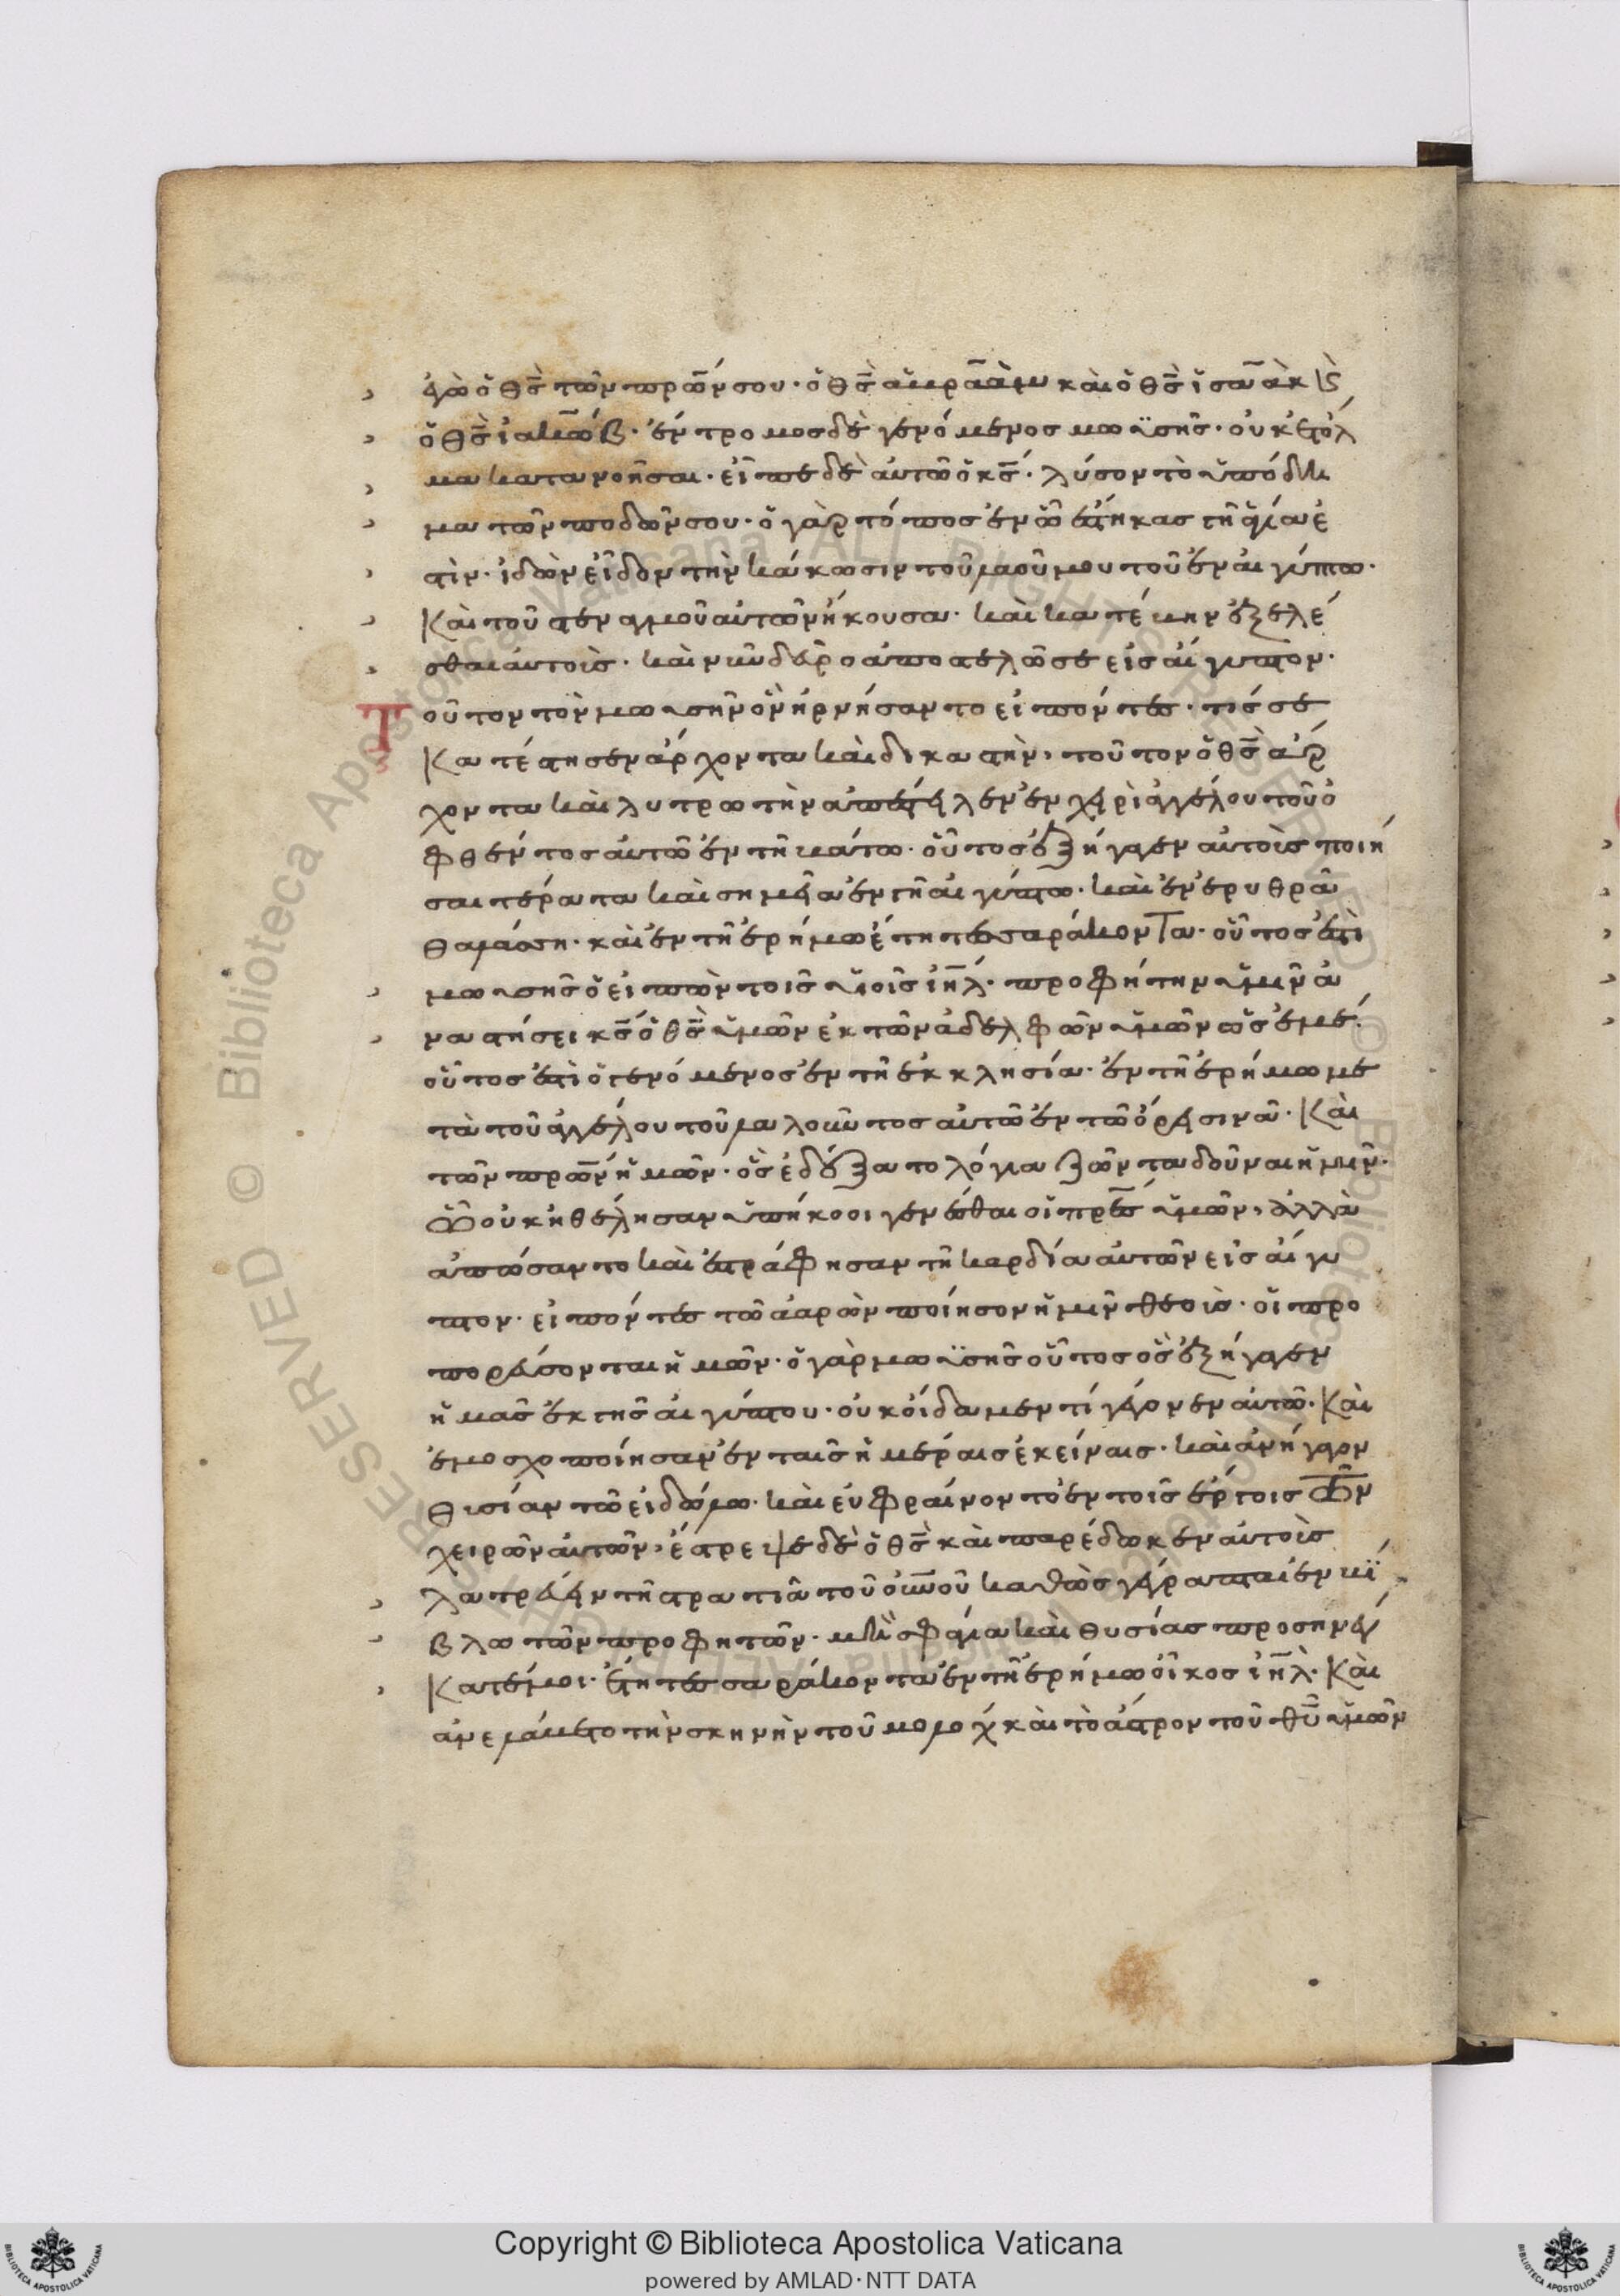 ἐγὼ ὁ θς̅ τῶν πρω̅ν σου· ὁ θς̅ ἀβραὰμ καὶ ὁ θς̅ ἰσαὰκ κ(αὶ)
ὁ θς̅ ἰακώβ· ἔντρομος δὲ γενόμενος μωϋσῆς· οὐκ ἐτόλ
μα κατανοῆσαι· εἶπε δὲ αὐτῶ ὁ κς̅· λύσον τὸ ὑπόδη
μα τῶν ποδῶν σου· ὁ γὰρ τόπος ἐν ῶ ἕστηκας γῆ ἁγία ἐ
στὶν· ἰδὼν εἶδον τὴν κάκωσιν τοῦ λαοῦ μου τοῦ ἐν αἰγύπτω·
Καὶ τοῦ στεναγμοῦ αὐτῶν ἤκουσα· καὶ κατέβην ἐξελέ
σθαι αὐτοὺς· καὶ νῦν δεῦρο ἀποστελῶ σε εἰς αἴγυπτον·
Τοῦτον τὸν μωυσῆν ὃν ἠρνήσαντο εἰπόντες· τίς σε
Κατέστησεν ἄρχοντα καὶ δικαστὴν, τοῦτον ὁ θς̅ ἄρ
χοντα καὶ λυτρωτὴν ἀπέστειλεν ἐν χειρὶ ἀγγέλου τοῦ ὀ
φθέντος αὐτῶ ἐν τῆ βάτω· οὗτος ἐξήγαγεν αὐτοὺς ποιή
σας τέρατα καὶ σημεῖα ἐν γῆ αἰγύπτω· καὶ ἐν ἐρυθρᾶ
θαλάσση· καὶ ἐν τῆ ἐρήμω ἔτη τεσσαράκοντα· οὗτός ἐστι
μωυσῆς ὁ εἰπὼν τοῖς υἱοῖς ιη̅λ· προφήτην ὑμῖν ἀ
ναστήσει κς̅ ὁ θς̅ ὑμῶν ἐκ τῶν ἀδελφῶν ὑμῶν ὡς ἐμέ·
οὗτός ἐστι ὁ γενόμενος ἐν τῆ ἐκκλησία· ἐν τῆ ἐρήμω με
τὰ τοῦ ἀγγέλου τοῦ λαλοῦντος αὐτῶ ἐν τῶ ὄρει σινᾶ· Καὶ
τῶν πρω̅ν ἡμῶν· ὃς ἐδέξατο λόγια ζῶντα δοῦναι ἡμῖν·
ῶ οὐκ ἠθέλησαν ὑπήκοοι γενέσθαι οἱ πρε̅ς ὑμῶν, ἀλλὰ
ἀπώσαντο καὶ ἐστράφησαν τῆ καρδία αὐτῶν εἰς αἴγυ
πτον· εἰπόντες τῶ ἀαρὼν ποίησον ἡμῖν θεοὺς· οἳ προ
πορεύσονται ἡμῶν· ὁ γὰρ μωϋσῆς οὗτος ὃς ἐξήγαγεν
ἡμᾶς ἐκ γῆς αἰγύπτου· οὐκ οἴδαμεν τί γέγονεν αὐτῶ· Καὶ
ἐμοσχοποίησαν ἐν ταῖς ἡμέραις ἐκείναις· καὶ ἀνήγαγον
θυσίαν τῶ εἰδώλω· καὶ εὐφραίνοντο ἐν τοῖς ἔργοις τῶν
χειρῶν αὐτῶν, ἔστρεψε δὲ ὁ θς̅ καὶ παρέδωκεν αὐτοὺς
λατρεύειν τῆ στρατιᾶ τοῦ οὐνοῦ καθὼς γέγραπται ἐν βί
βλω τῶν προφητῶν· μὴ σφάγια καὶ θυσίας προσηνέγ
Κατέ μοι· ἔτη τεσσαράκοντα ἐν τῆ ἐρήμω οἶκος ιη̅λ· Καὶ
ἀνελάβετο τὴν σκηνὴν τοῦ μολοχ καὶ τὸ ἄστρον τοῦ θυ̅ ὑμῶν
Copyright © Biblioteca Apostolica Vaticana
powered by AMLAD·NTT DATA